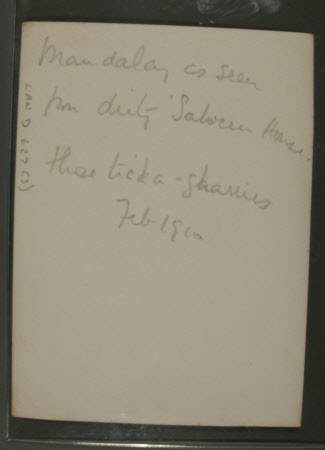 Mandalay as seen
from dirty 'Salween House.
those ticka-gharries
Feb 1910
LAN D 627 (3)